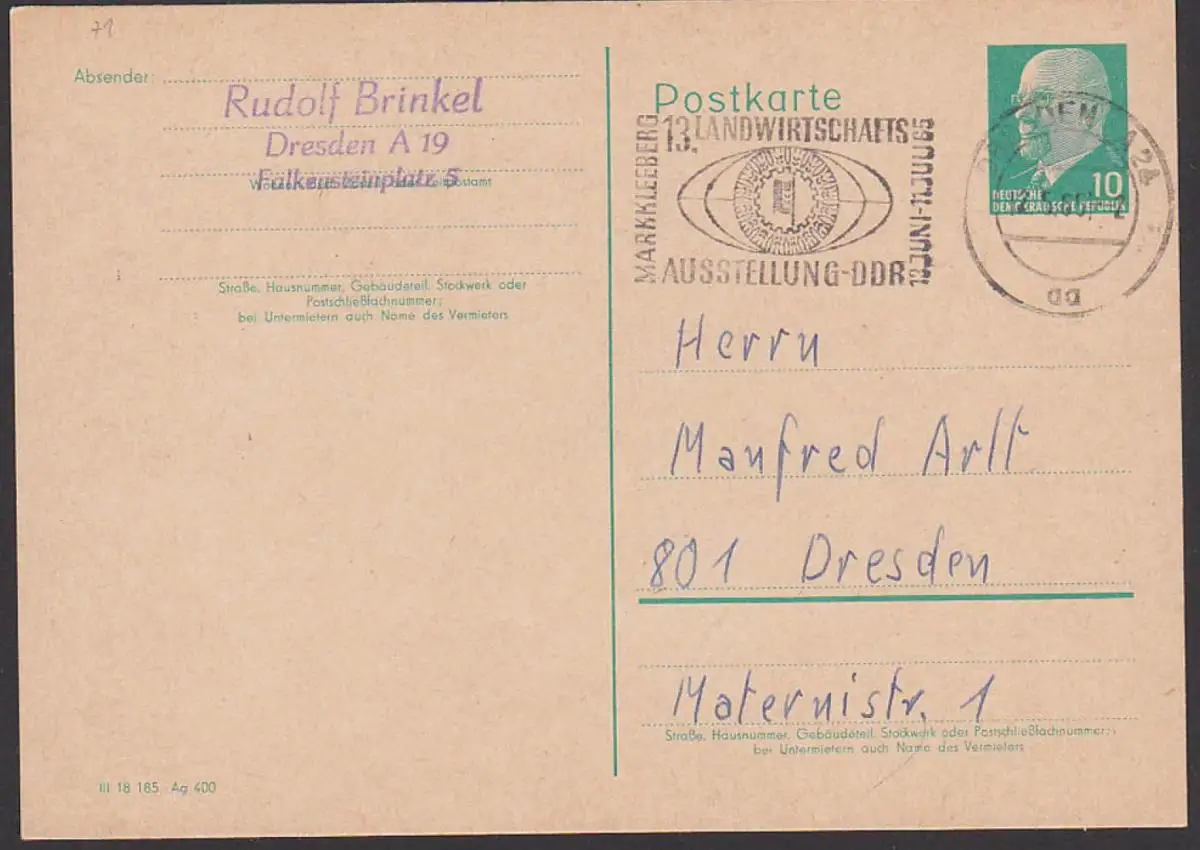 71
Absender:
Rudolf Brinkel
Dresden A 19
Falkensteinplatz 5
Straße, Hausnummer, Gebäudeteil, Stockwerk oder
Postschließfachnummer;
bei Untermietern auch Name des Vermieters
III 18 185 Ag 400
Postkarte
MARKKLEEBERG
13. LANDWIRTSCHAFTS
AUSSTELLUNG-DDR
13. JUNI-11. JULI 65
DEUTSCHE
DEMOKRATISCHE REPUBLIK
10
DRESDEN A24
DD
Herrn
Manfred Arlt
801 Dresden
Maternistr. 1
Straße, Hausnummer, Gebäudeteil, Stockwerk oder Postschließfachnummer;
bei Untermietern auch Name des Vermieters